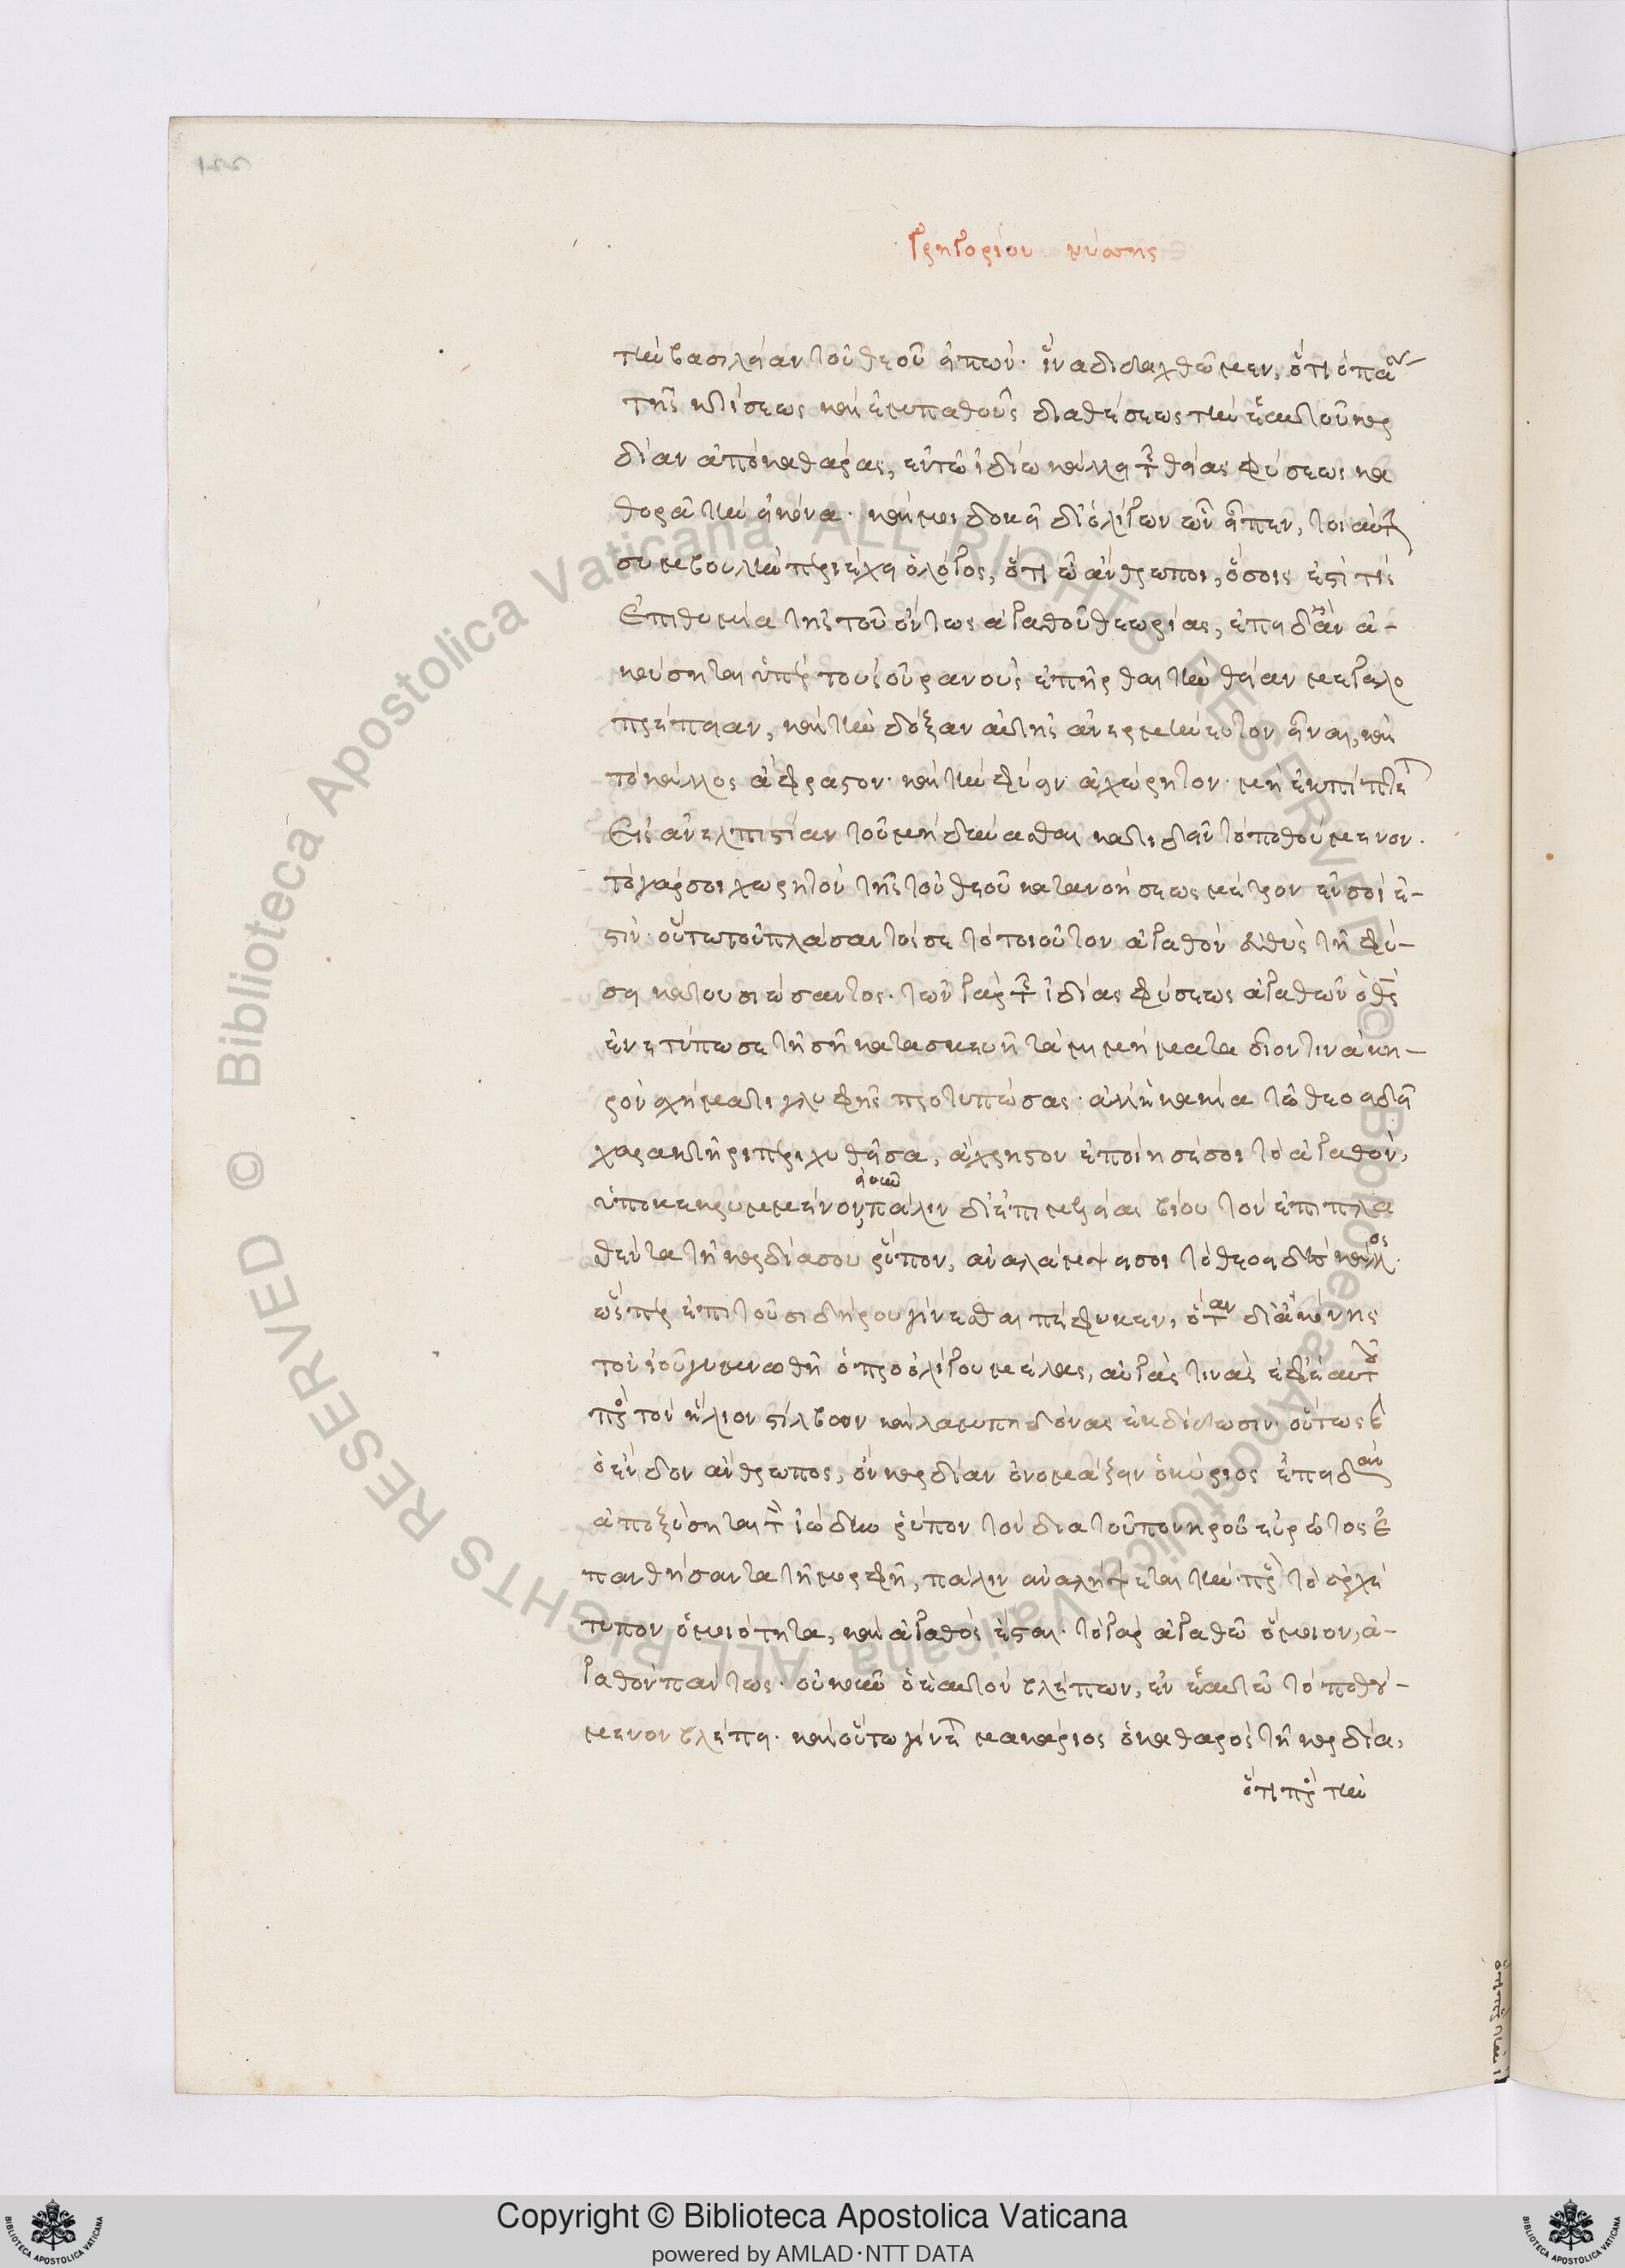 Γρηγορίου νύσης
τὴν βασιλείαν τοῦ θεοῦ εἰπών· ἵνα διδαχθῶμεν, ὅτι ὁ πά
της κτίσεως καὶ ἐμπαθοῦς διαθέσεως τὴν ἑαυτοῦ καρ
δίαν ἀποκαθάρας, ἐν τῶ ἰδίω κάλλει τῆς θείας φύσεως κα
θορᾶ τὴν εἰκόνα· καί μοι δοκεῖ δι' ὀλίγων ὧν εἶπεν, τοιαύτην
συμβουλὴν περιέχει ὁ λόγος, ὅτι ὦ ἄνθρωποι, ὅσοις ἐστί τις
Ἐπιθυμία τῆς τοῦ ὄντως ἀγαθοῦ θεωρίας, ἐπειδὰν ἀ-
κούσηται ὑπὲρ τοὺς οὐρανοὺς ἐπῆρθαι τὴν θείαν μεγαλο
πρέπειαν, καὶ τὴν δόξαν αὐτῆς ἀνερμήνευτον εἶναι, καὶ
τὸ κάλλος ἄφραστον· καὶ τὴν φύσιν ἀχώρητον· μὴ ἐκπίπτετε
Εἰς ἀνελπιστίαν τοῦ μὴ δύνασθαι κατιδεῖν τὸ ποθούμενον.
τὸ γάρ σοι χωρητὸν τῆς τοῦ θεοῦ κατανοήσεως μέτρον ἐν σοί ἐ-
στιν· οὕτω τοῦ πλάσαντός σε τὸ τοιοῦτον ἀγαθὸν εὐθὺς τῆ φύ-
σει κατουσιώσαντος· τῶν γὰρ τῆς ἰδίας φύσεως ἀγαθῶν ὁ θς
ἐνετύπωσε τῆ σῆ κατασκευῆ τὰ μιμήματα οἷόν τινα κη-
ρὸν σχήματι γλυφῆς προτυπώσας· ἀλλ' ἡ κακία τῶ θεοειδεῖ
χαρακτῆρι περιχυθεῖσα, ἄχρηστον ἐποίησέ σοι τὸ ἀγαθὸν,
ὑποκεκρυμμένον, πάλιν δι' ἐπιμελείας βίου τὸν ἐπιπλα
σθέντα τῆ καρδία σου ῥύπον, ἀναλάμψει σοι τὸ θεοειδὲς κάλλος.
ὥσπερ ἐπὶ τοῦ σιδήρου γίνεσθαι πέφυκεν, ὅταν δι' ἀκόνης
τοῦ ἰοῦ γυμνωθῆ ὁ πρὸ ὀλίγου μέλας, αὐγάς τινας ἐφ' ἑαυτοῦ
πρὸς τὸν ἥλιον στίλβων καὶ λαμπηδόνας ἐκδίδωσιν· οὕτως καὶ
ὁ ἔνδον ἄνθρωπος, ὃν καρδίαν ὀνομάζειν ὁ κύριος ἐπειδὰν
ἀποξύσηται τὸν ἰώδην ῥύπον τὸν διὰ τοῦ πονηροῦ εὐρῶτος ἐ
πανθήσαντα τῆ μορφῆ, πάλιν ἀναλήψεται τὴν πρὸς τὸ ἀρχέ
τυπον ὁμοιότητα, καὶ ἀγαθὸς ἔσται· τὸ γὰρ ἀγαθῶ ὅμοιον, ἀ-
γαθὸν πάντως· οὐκοῦν ὁ ἑαυτὸν βλέπων, ἐν ἑαυτῶ τὸ ποθού-
μενον βλέπει· καὶ οὕτω γίνεται μακάριος ὁ καθαρὸς τῆ καρδία,
ὅτι πρὸς τὴν